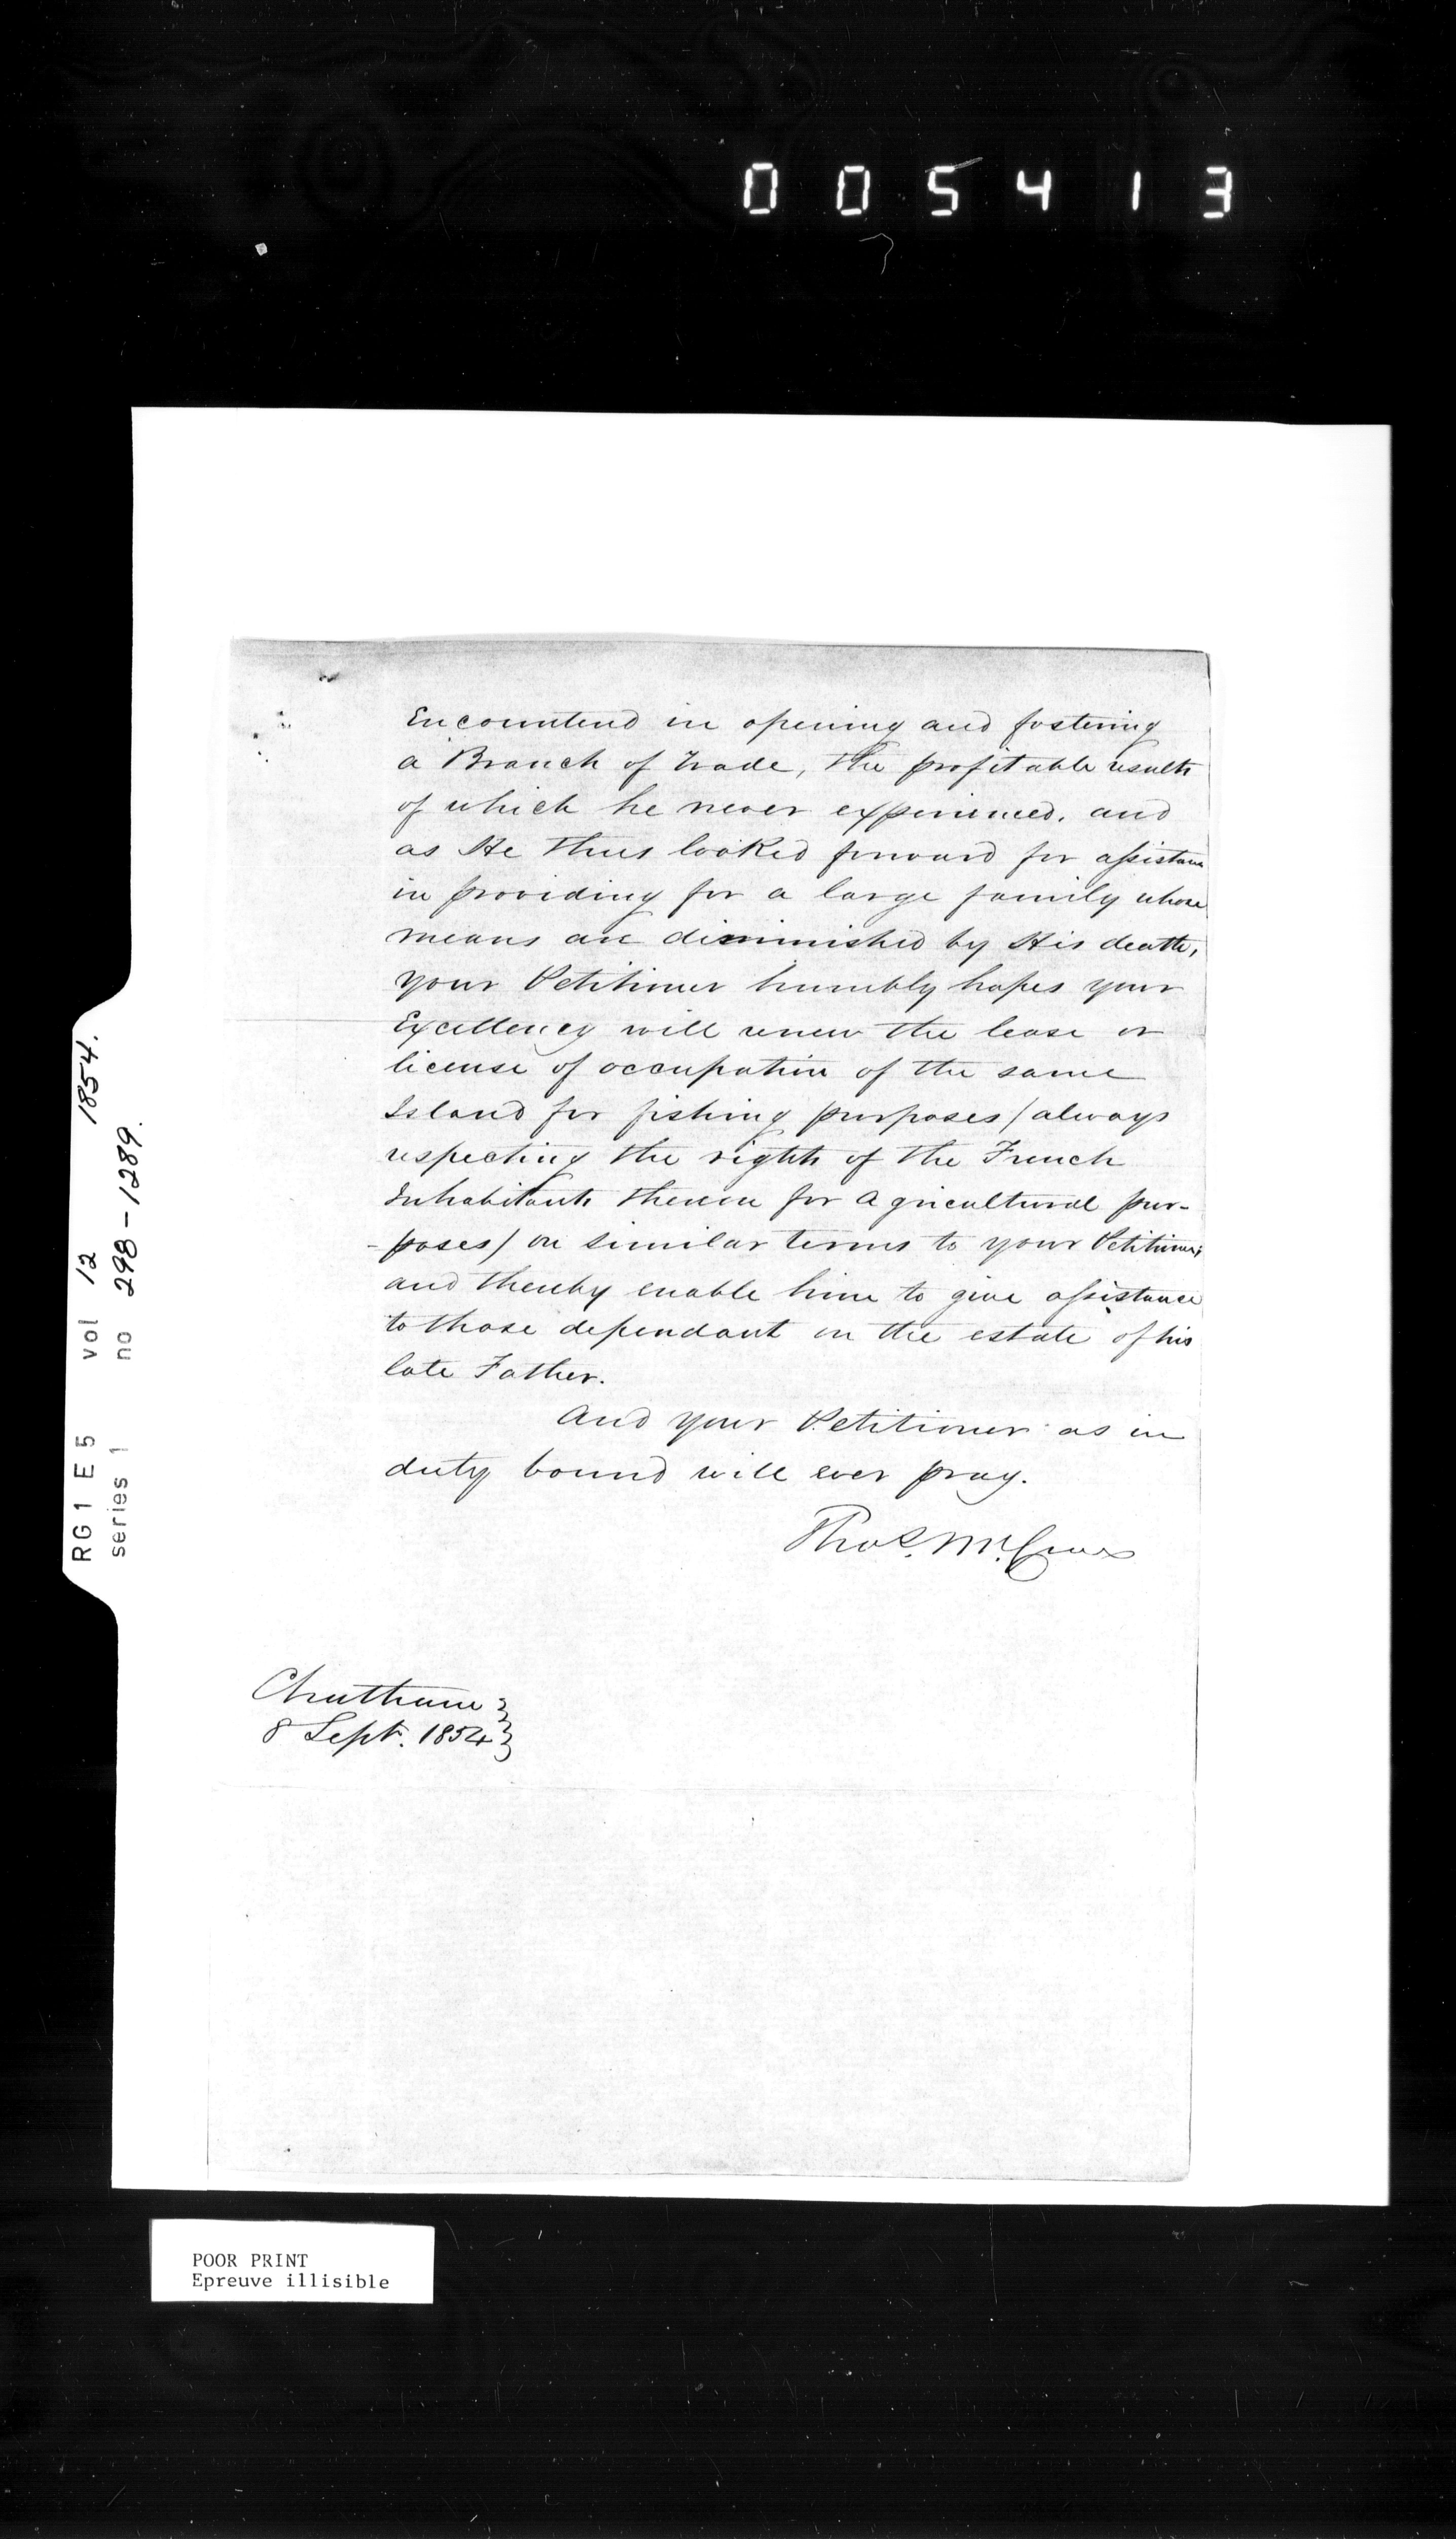 005413
Encountered in opening and fostering
a Branch of Trade, the profitable results
of which he never experienced, and
as He thus looked forward for assistance
in providing for a large family whose
means are diminished by His death,
your Petitioner humbly hopes your
Excellency will renew the lease or
license of occupation of the same
Island for fishing purposes / always
respecting the rights of the French
Inhabitants thereon for Agricultural pur-
-poses / on similar terms to your Petitioner;
and thereby enable him to give assistance
to those dependant on the estate of his
late Father.
And your Petitioner as in
duty bound will ever pray.
Thos. Mc
Chatham
8 Sept. 1854
RG1 E5 vol 12 1854.
series 1 no 298-1289.
POOR PRINT
Epreuve illisible